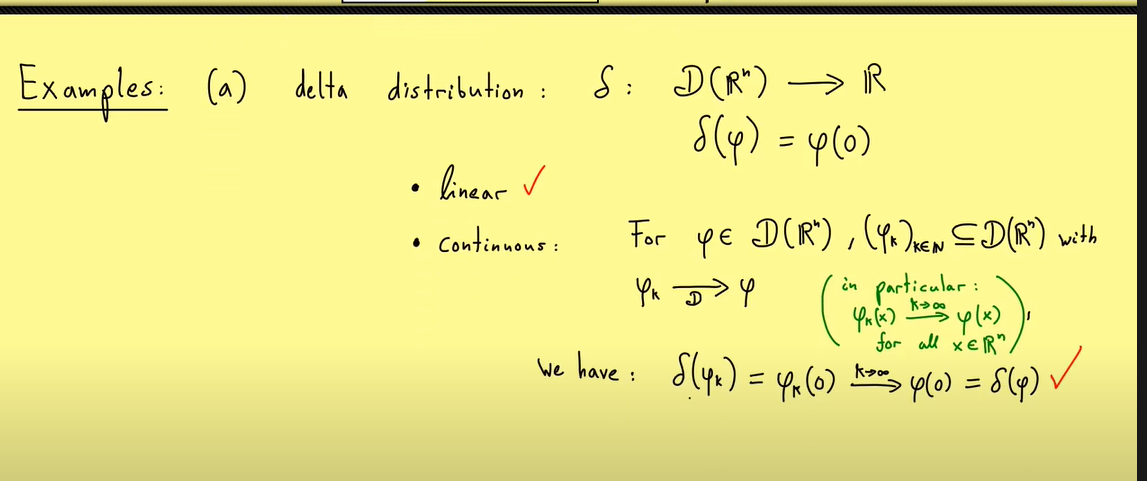 Examples: (a) delta distribution: δ: D(ℝⁿ) ⟶ ℝ
δ(φ) = φ(0)
• linear ✓
• continuous: For φ ∈ D(ℝⁿ), (φₖ)ₖ∈ℕ ⊆ D(ℝⁿ) with
φₖ ⟶_D φ (in particular:
φₖ(x) ⟶^{k→∞} φ(x)
for all x ∈ ℝⁿ),
we have: δ(φₖ) = φₖ(0) ⟶^{k→∞} φ(0) = δ(φ) ✓